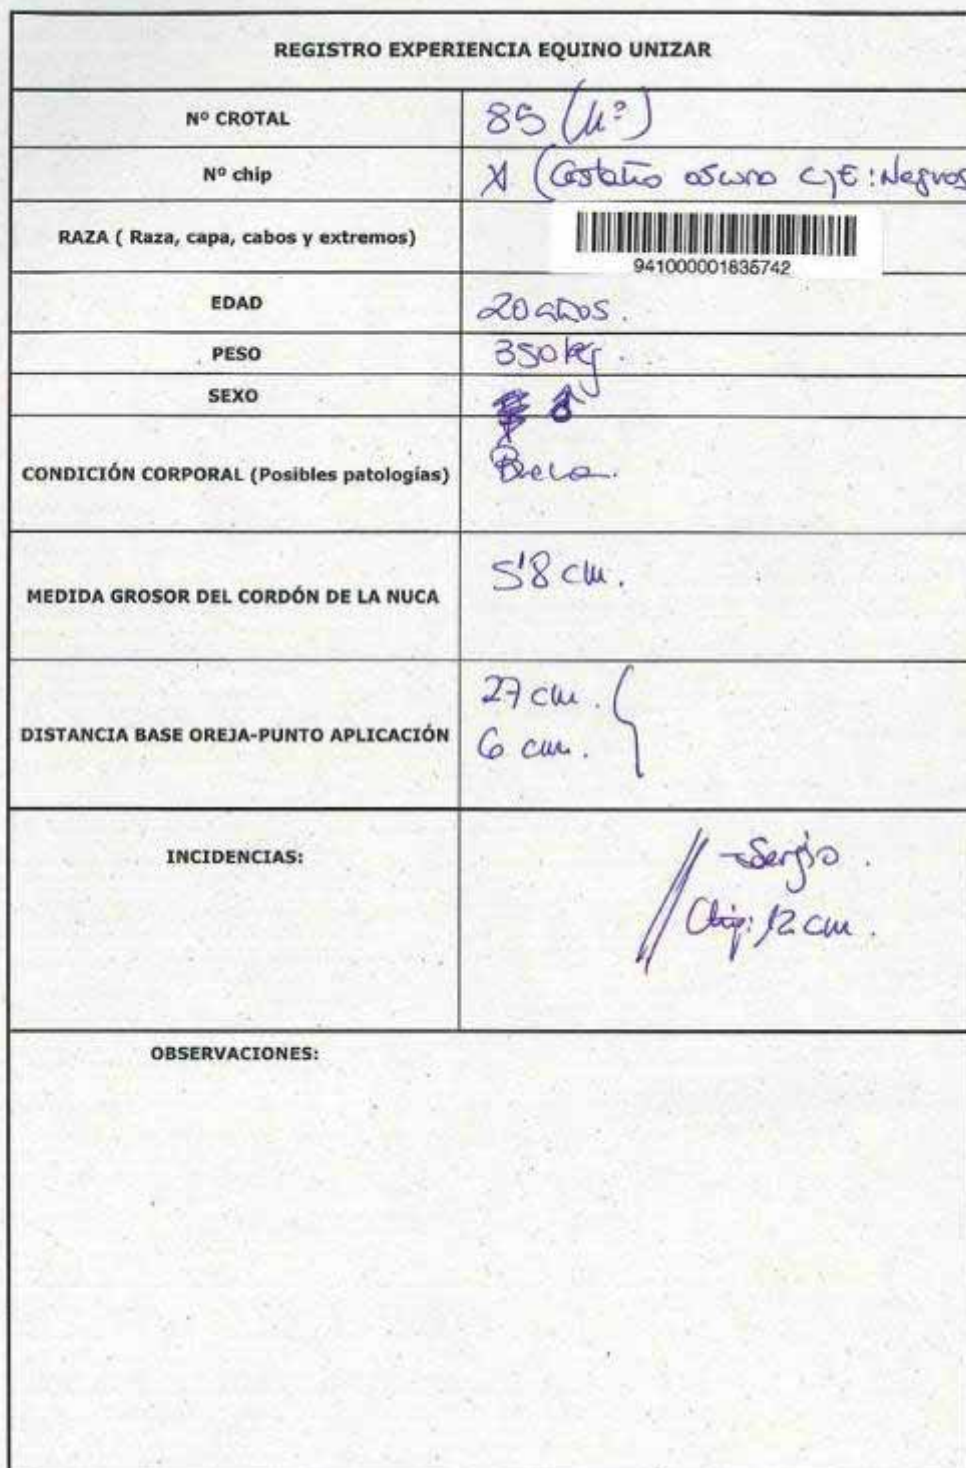 REGISTRO EXPERIENCIA EQUINO UNIZAR
Nº CROTAL 85
Nº chip (Castaño oscuro C,E: Negros
RAZA ( Raza, capa, cabos y extremos) 941000001635742
EDAD 20 años.
PESO 350 kg.
SEXO
CONDICIÓN CORPORAL (Posibles patologías)
MEDIDA GROSOR DEL CORDÓN DE LA NUCA 5'8 cm.
DISTANCIA BASE OREJA-PUNTO APLICACIÓN 27 cm.
6 cm.
INCIDENCIAS: Sergio.
Chip: 12 cm.
OBSERVACIONES: